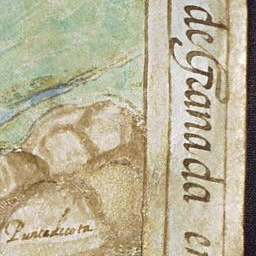 de Granada en
Puntadecota